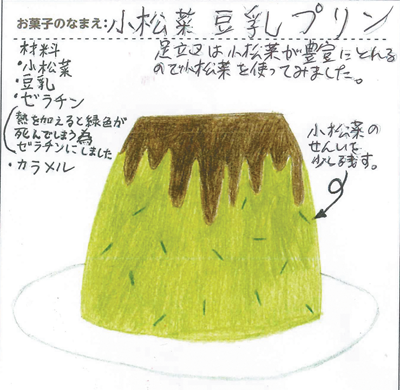 お菓子のなまえ:小松菜豆乳プリン
足立区は小松菜が豊富にとれる
ので小松菜を使ってみました。
材料
・小松菜
・豆乳
・ゼラチン
(熱を加えると緑色が
死んでしまう為
ゼラチンにしました
・カラメル
小松菜の
せんいを
少し残す。